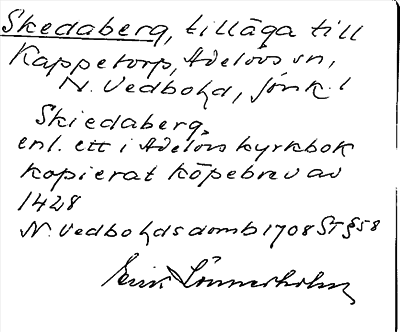 Skedaberg, tillåga till
Kappetorp, Adelövs sn,
N. Vedbohd, Jönk. l
Skiedaberg,
enl. ett i Adelövs kyrkbok
kopierat köpebrev av
1428
N. Vedbohdsdomb 1708 ST § 58